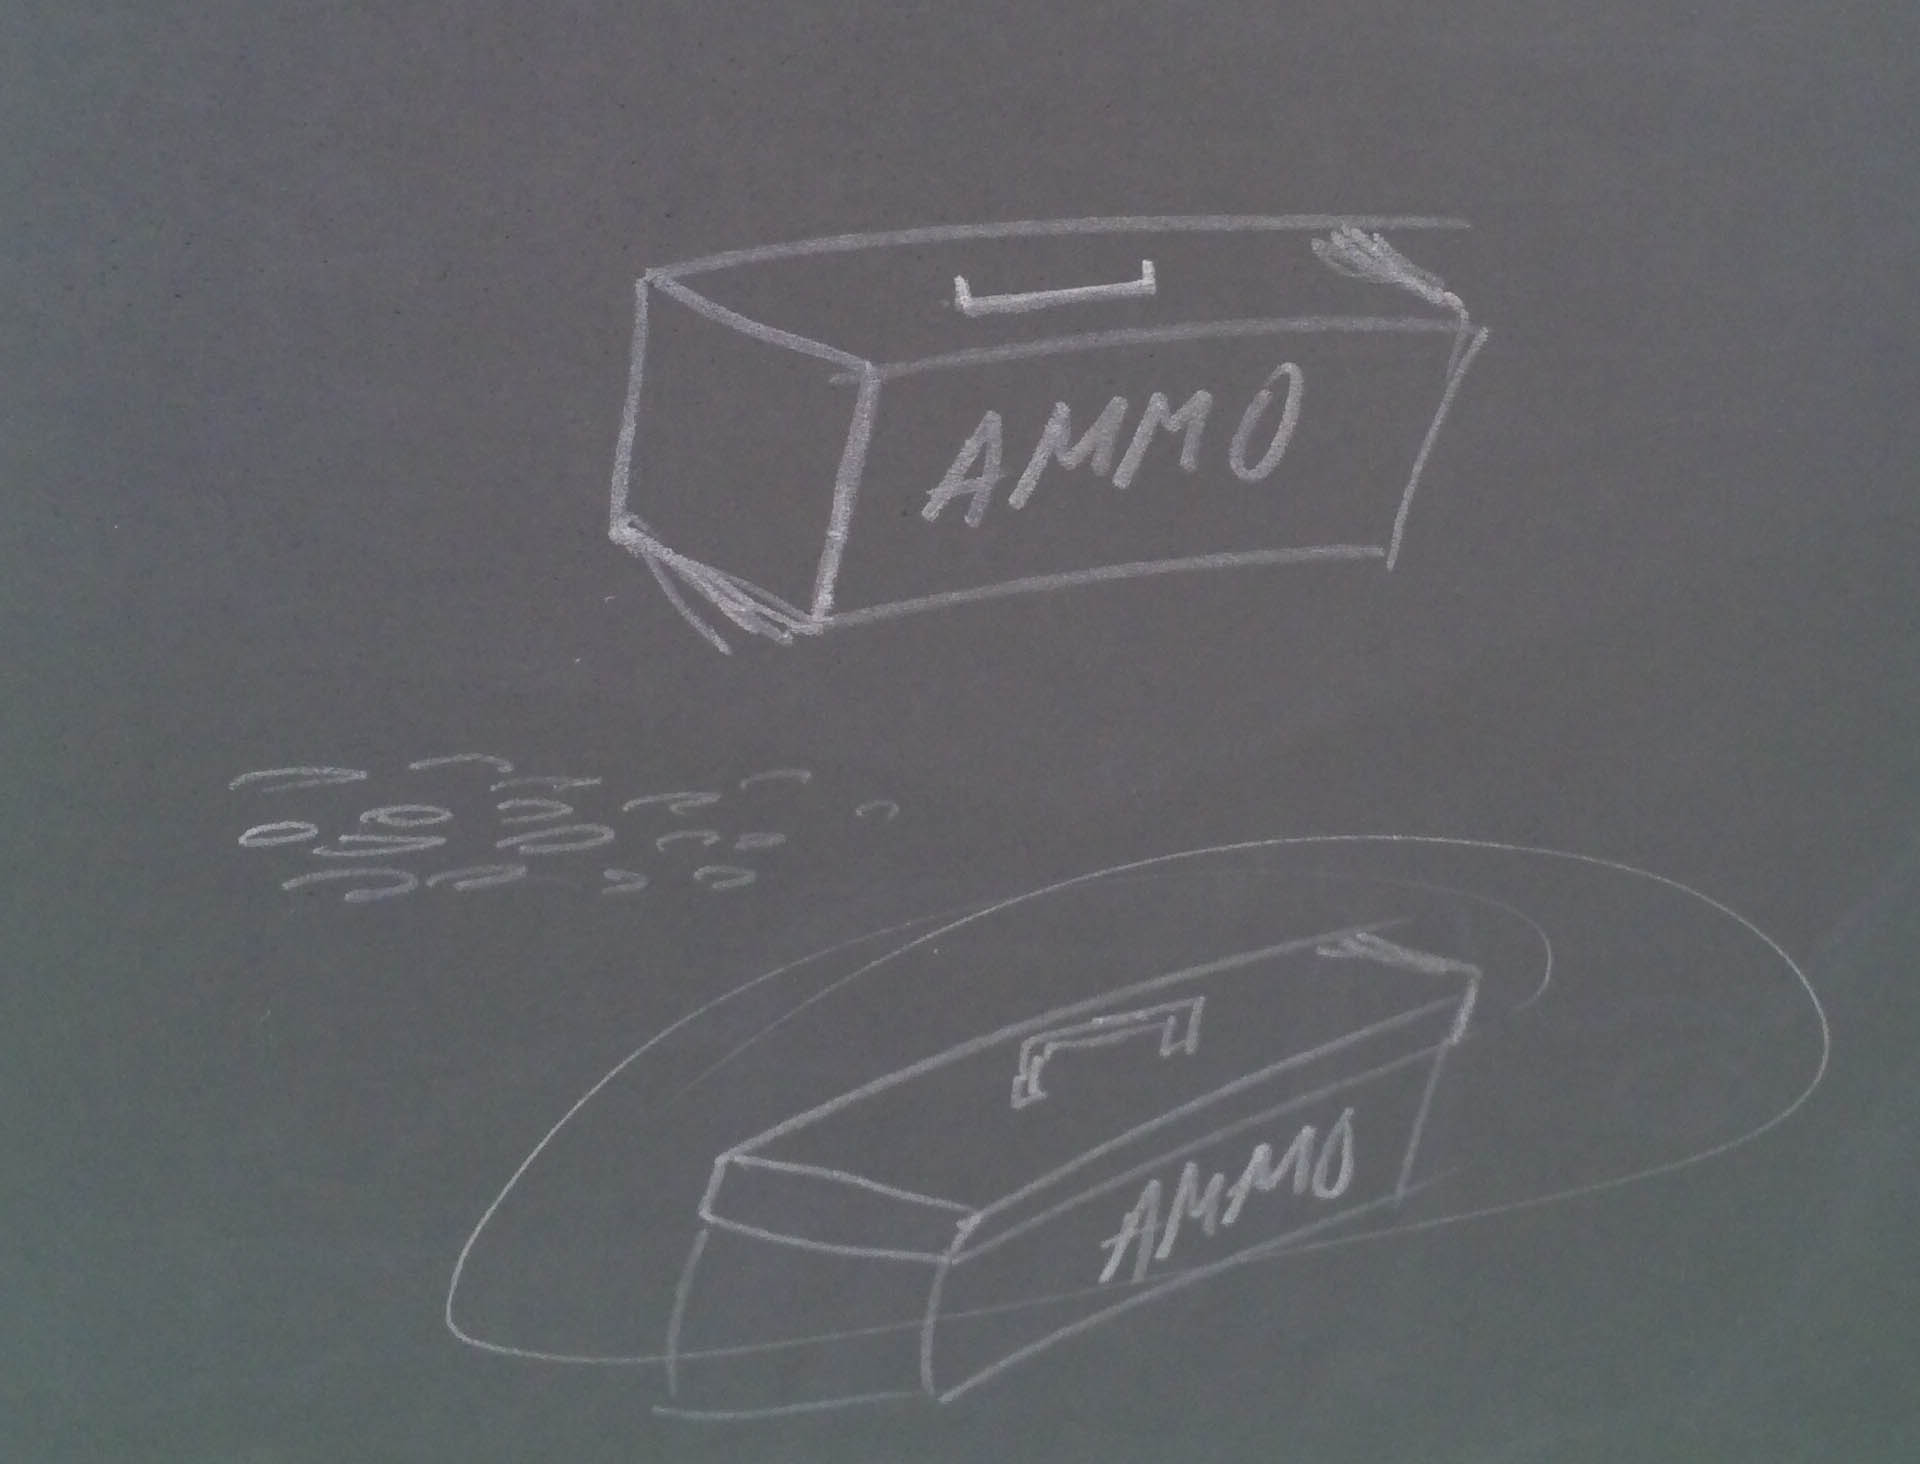 AMMO
AMMO